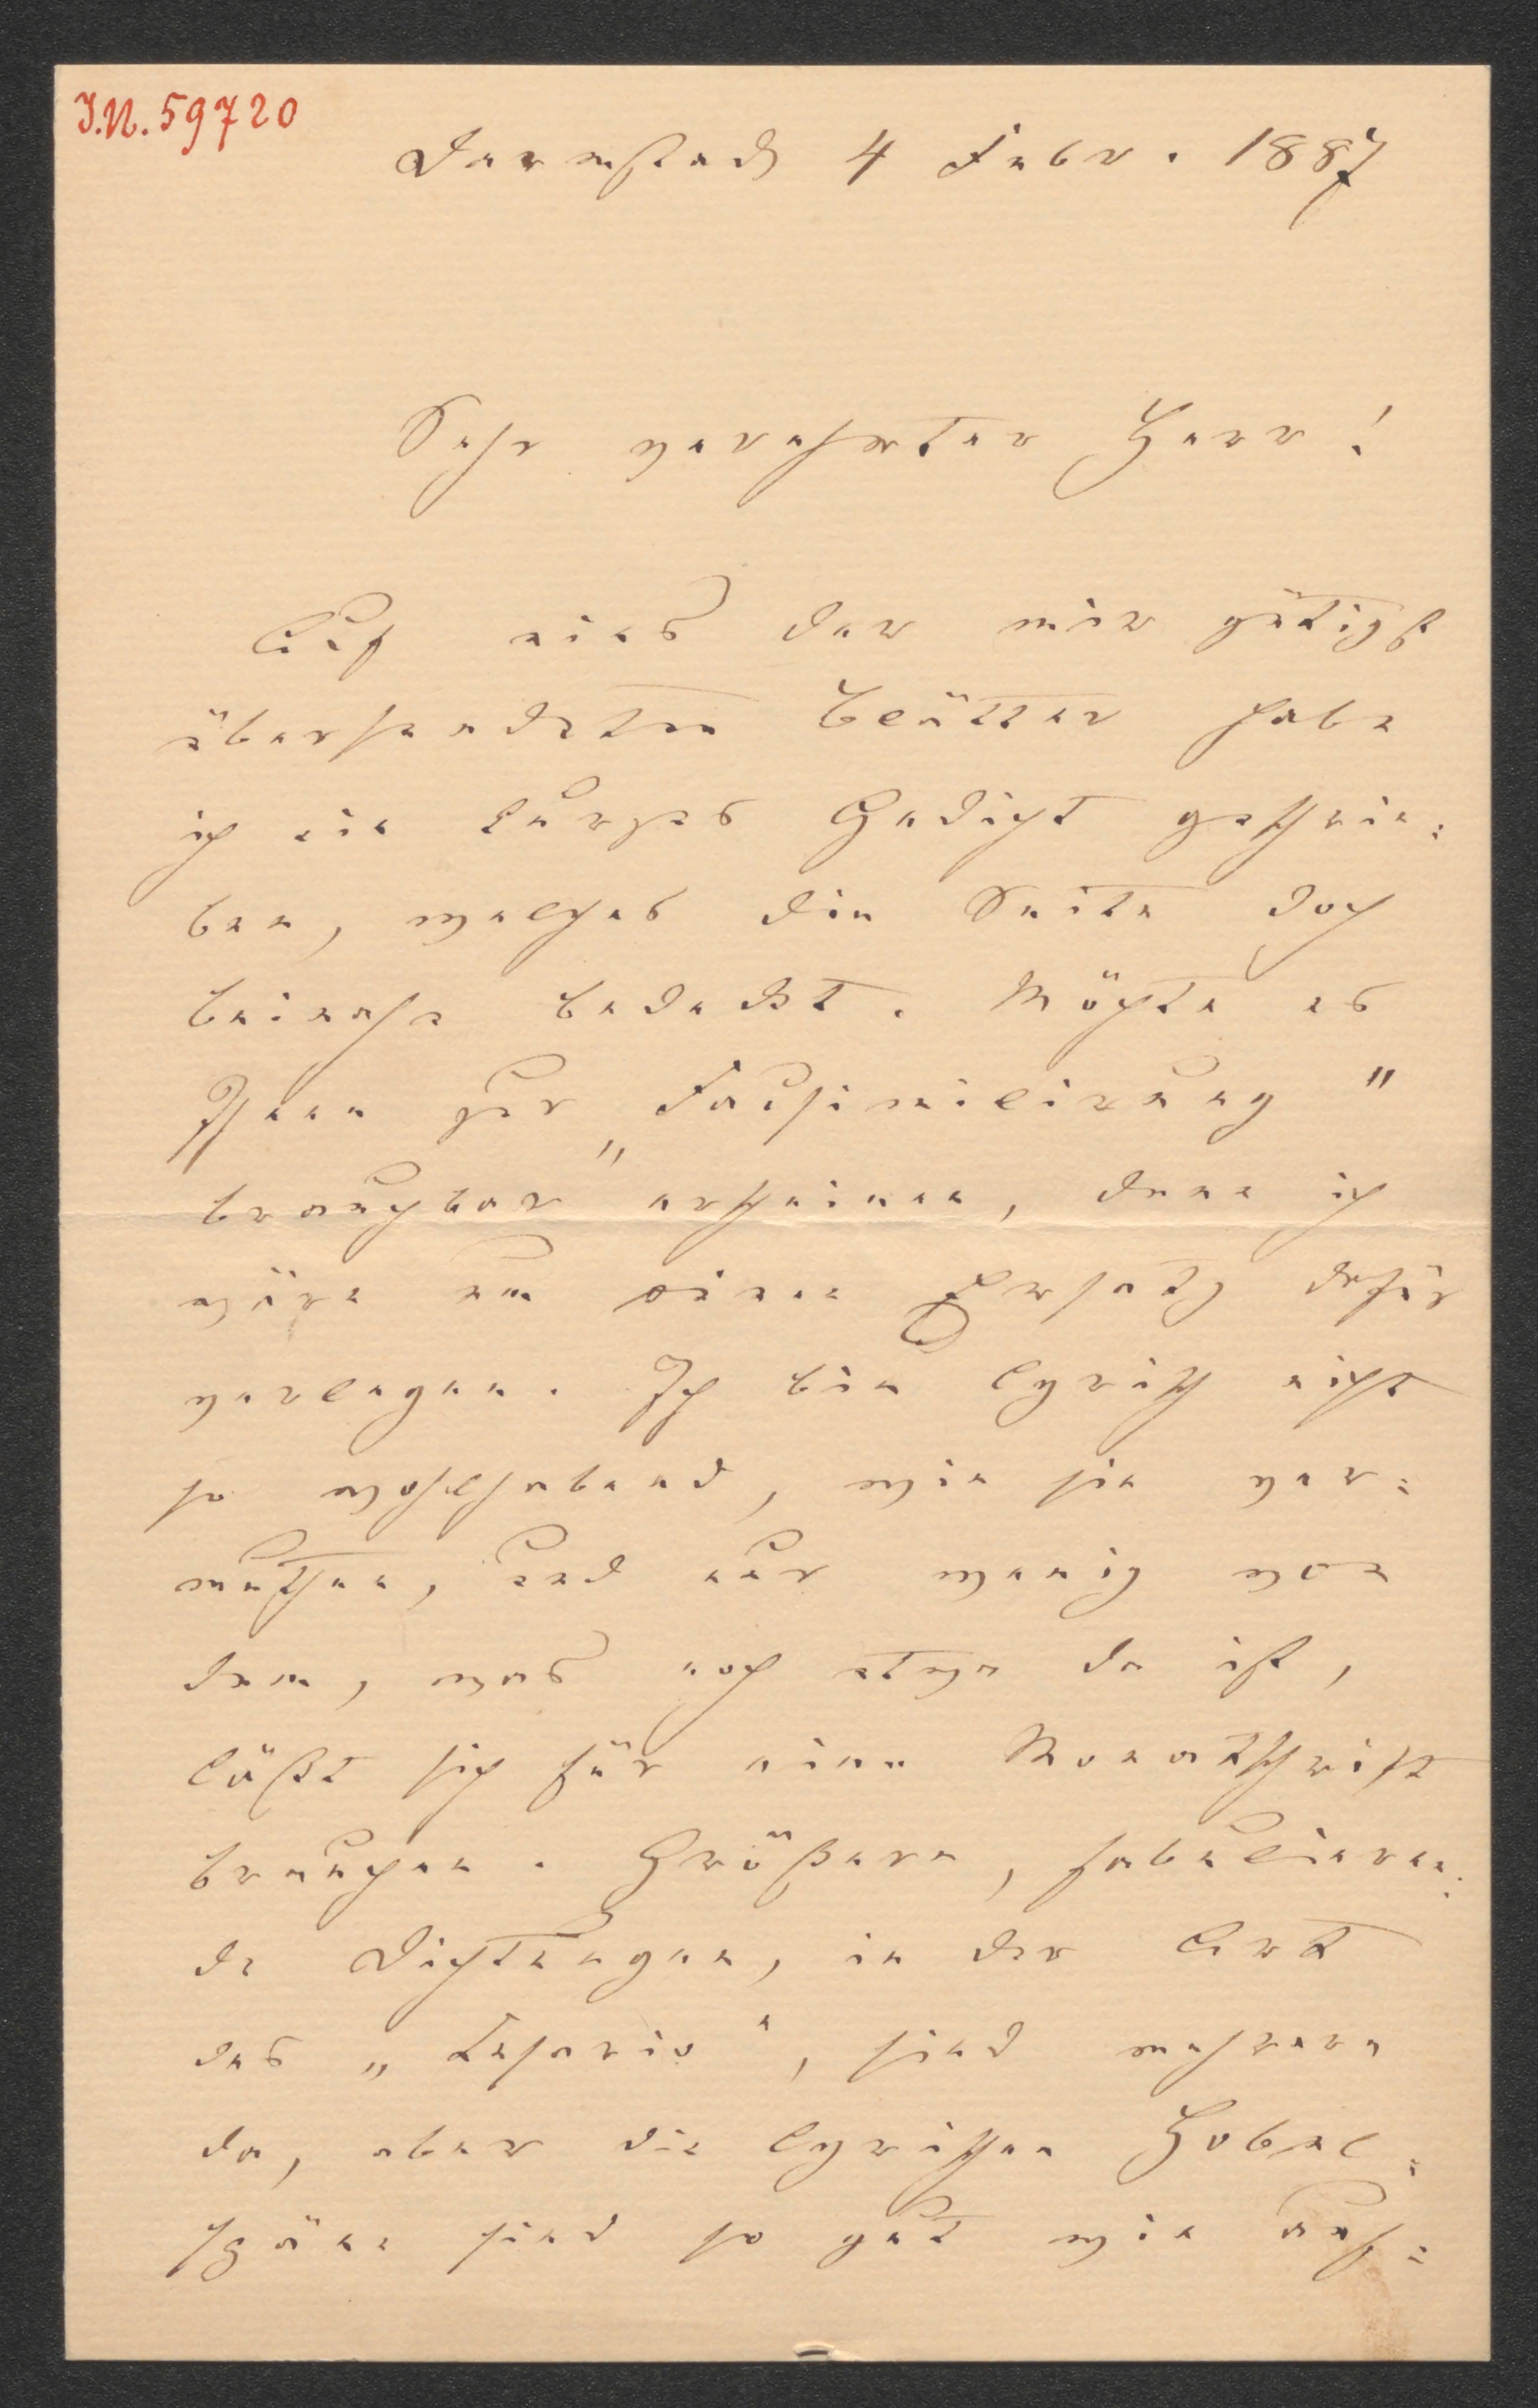 J.N. 59720
Darmstadt 4 Febr. 1887
Sehr verehrter Herr!
Auf eines der mir gütigst
übersendeten Blätter habe
ich ein kurzes Gedicht geschrie:
ben, welches die Seite doch
beinahe bedeckt. Möchte es
Ihnen zur „Facsimilirung"
brauchbar erscheinen, denn ich
wäre um einen Ersatz dafür
verlegen. Ich bin lyrisch nicht
so wohlhabend, wie sie ver:
muthen, und nur wenig von
dem, was noch etwa da ist,
läßt sich für eine Monatschrift
brauchen. Größere, fabulieren:
de Dichtungen, in der Art
des „Tesorio", sind mehrere
da, aber die lyrischen Hobel:
späne sind so gut wie auf: